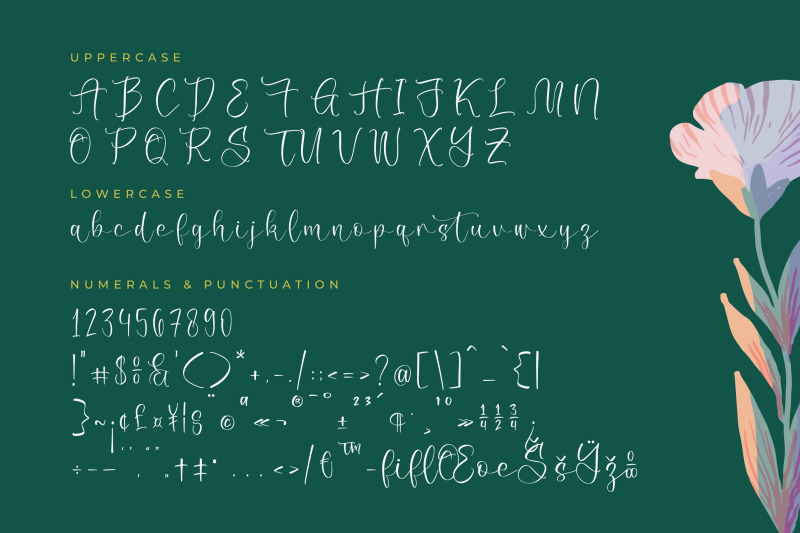 UPPERCASE
A B C D E F G H I J K L M N
O P Q R S T U V W X Y Z
LOWERCASE
a b c d e f g h i j k l m n o p q r s t u v w x y z
NUMERALS & PUNCTUATION
1 2 3 4 5 6 7 8 9 0
! " # $ % & ' ( ) * + , - . / : ; < = > ? @ [ \ ] ^ _ ` { |
} ~ ¡ ¢ £ ¤ ¥ ¦ § ¨ © ª « ¬ ® ¯ ° ± ² ³ ´ ¶ · ¸ ¹ º » ¼ ½ ¾ ¿
÷ – — ‘ ’ ‚ “ ” „ † ‡ • … ‹ › ⁄ € ™ − fi fl Œ œ Š š Ÿ ž ‰